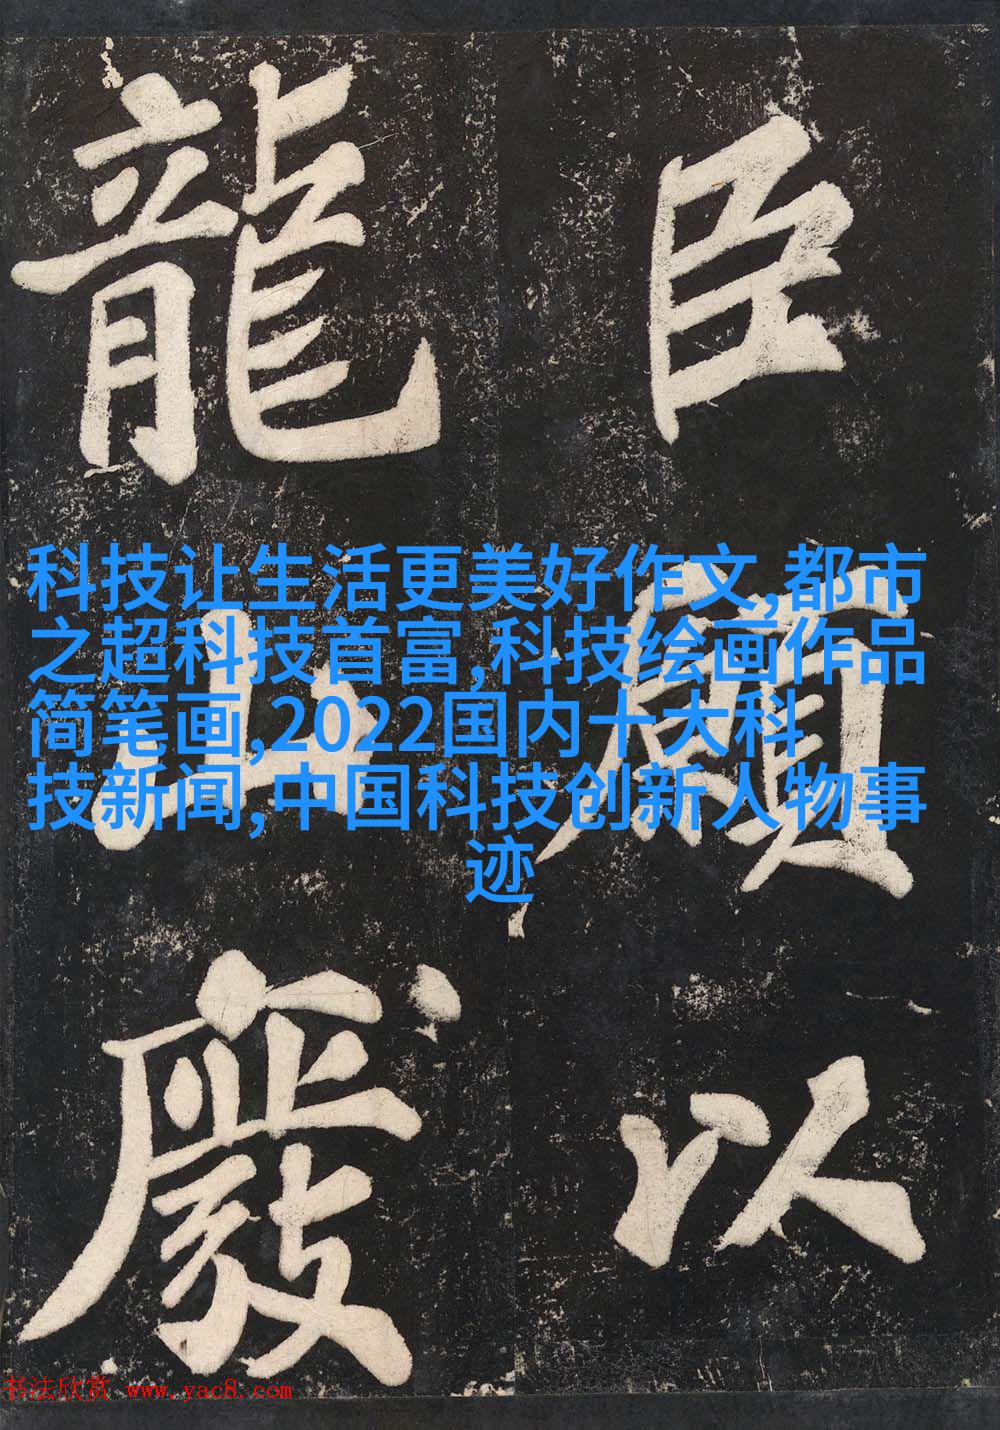 臣願以
龍山
科技让生活更美好作文,都市
之超科技首富,科技绘画作品
简笔画,2022国内十大科
技新闻,中国科技创新人物事
迹
书法欣赏 www.yac8.com